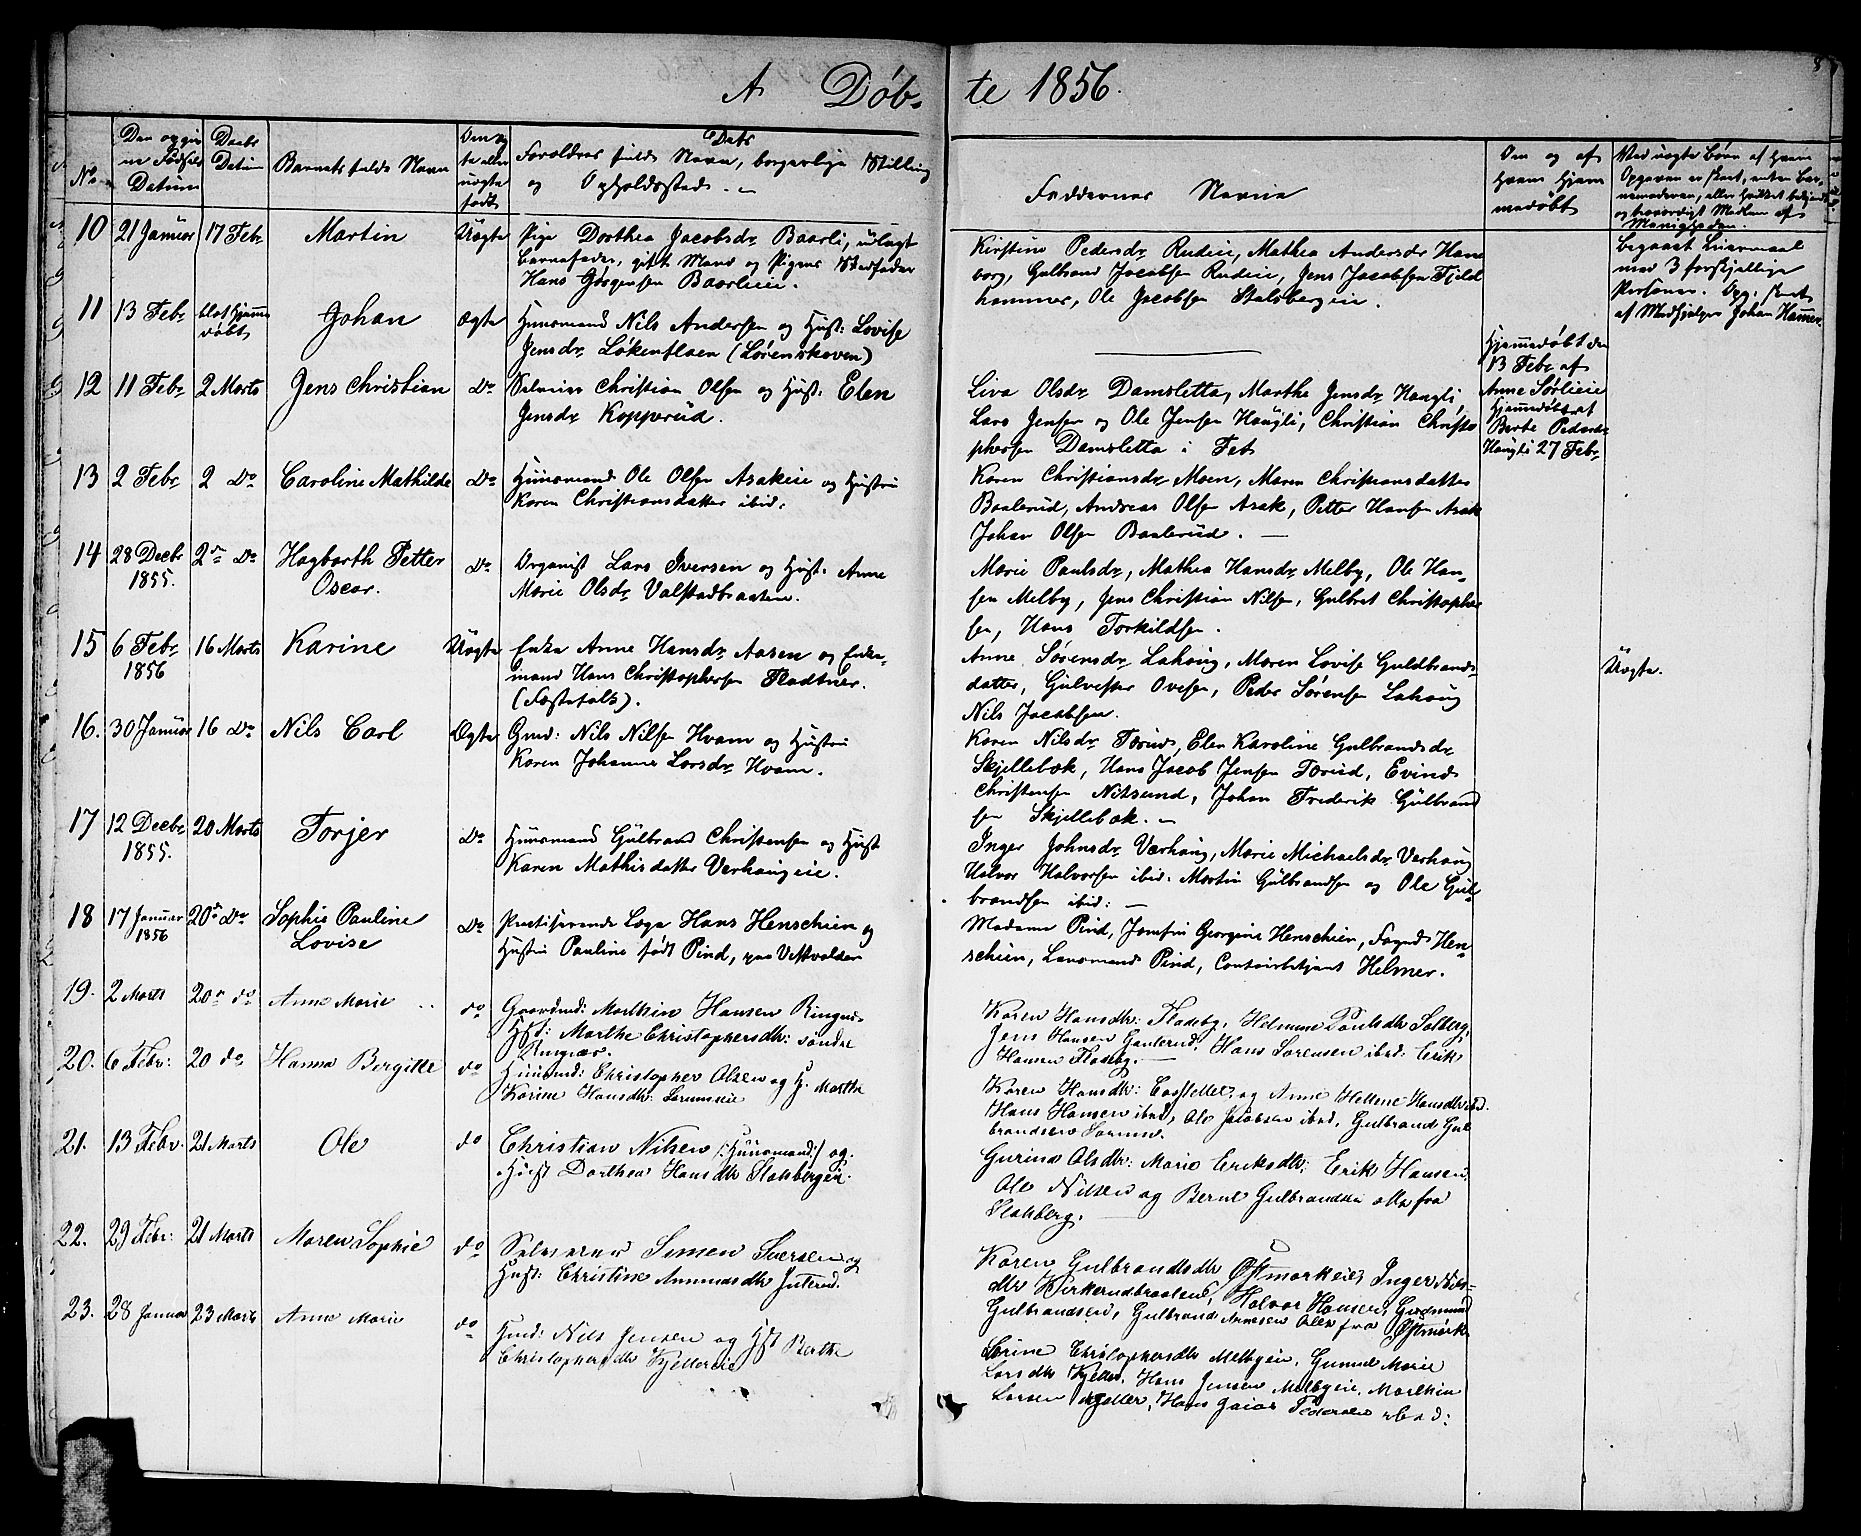 A Døb-
te 1856.
8
No
Den opgiv
ne Fødsels
Datum
Daabs
Datum
Barnets fulde Navn
Om æg
te eller
uægte
født
Dets
Forældres fulde Navn, borgerlige Stilling
og Opholdssted. –
Faddernes Navne
Om og af
hvem hjem
medøbt
Ved uægte Børn af hvem
Opgaven er skeet, enten Bar
nemoderen, eller hvilket bekjendt
og troværdigt Medlem af
Menigheden.
10 21 Januar 17 Febr Martin Uægte
Pige Dorthea Jacobsdr Baarli, udlagt
Barnefader, gift Mand og Pigens Stedfader
Hans Jørgensen Baarlieie.
Kirstine Pedersdr Rudeie, Mathea Andersdr Hans
borg, Gulbrand Jacobsen Rudeie, Jens Jacobsen Fjeld
hammer, Ole Jacobsen Stalsbergeie.
begaaet Leiermaal
med 3 forskjellige
Personer. Opg. skeet
af Medhjelper Johan Hammer
11 13 Febr blot hjemme
døbt Johan Ægte
Huusmand Nils Andersen og Hust: Lovise
Jensdr Løkenflaen (Lørenskoven)
Hjemmedøbt den
13 Febr af
Anne Sørlieie
12 11 Febr 2 Marts Jens Christian Do
Selveier Christian Olsen og Hust: Elen
Jensdr Kopperud.
Liva Olsdr Damsletta, Marthe Jensdr Haugli,
Lars Jensen og Ole Jensen Haugli, Christian Christo
phersen Damsletta i Fet
Hjemmedøbt af
Berte Pedersdr
Haugli 27 Febr
13 2 Febr 2 Do Caroline Mathilde Do
Huusmand Ole Olsen Asakeie og Hustru
Karen Christiansdatter ibid:
Karen Christiansdr Moen, Maren Christiansdatter
Baalerud, Andreas Olsen Asak, Petter Hansen Asak
Johan Olsen Baalerud. –
14 28 Decbr
1855. 2 Do Hagbarth Petter
Oscar. Do
Organist Lars Iversen og Hust. Anne
Marie Olsdr Valstadbraaten.
Marie Paulsdr, Mathea Hansdr Melby, Ole Han-
sen Melby, Jens Christian Nilsen, Gulbret Christophe
sen, Hans Torkildsen.
15 6 Febr
1856 16 Marts Karine Uægte
Enke Anne Hansdr Aasen og Enke-
mand Hans Christophersen Fladtner.
(Festefolk).
Anne Sørensdr Lahaug, Maren Lovise Guldbrands-
datter, Gulvester Ovesen, Peder Sørensen Lahaug
Nils Jacobsen.
Uægte.
16. 30 Januar 16 Do Nils Carl Ægte
Gmd: Nils Nilsen Hvam og Hustru
Karen Johanne Larsdr Hvam.
Karen Nilsdr Tærud, Elen Karoline Gulbrandsdr
Skjellebæk, Hans Jacob Jensen Tærud, Evind
Christensen Nitsund, Johan Frederik Gulbrand
sen Skjellebæk. –
17 12 Decbr
1855. 20 Marts Torjer Do
Huusmand Gulbrand Christensen og Hust
Karen Mathisdatter Varhaugeie.
Inger Johnsdr Varhaug, Marie Michaelsdr Varhaug
Halvor Halvorsen ibid. Martin Gulbrandsen og Ole Gul-
brandsen ibid: –
18 17 Januar
1856 20 Do Sophie Pauline
Lovise Do
Practiserende Læge Hans Henschien og
Hustru Pauline født Pind, paa Vestvolden
Madame Pind, Jomfru Georgine Henschien, Foged Hen-
schien, Lensmand Pind, Contoirbetjent Helmer.
19. 2 Marts 20 do Anne Marie do
Gaardmd: Marthin Hansen Ringnes
Hst: Marthe Christophersdtr: søndre
Ringnæs.
Karen Hansdtr: Fladeby, Helmine Paulsdtr Solberg,
Jens Hansen Gauterud, Hans Sørensen ibid: Erik
Hansen Fladeby.
20. 6 Febr: 20 do Hanna Bergitte do
Huusmd: Christopher Olsen og H. Marthe
Karine Hansdtr: Sørumeie
Karen Hansdtr: og Anne Hellene Hansdtr ibid.
Hans Hansen ibid, Ole Jacobsen ibid, Gulbrand Gul
brandsen Sørum.
21. 13 Febr. 21 Marts Ole do
Christian Nilsen /:Huusmand:/ og
Hust Dorthea Hansdtr Stalsbergeie.
Gurine Olsdtr: Marie Eriksdtr: Erik Hansen,
Ole Nilsen og Bernt Gulbrandsen alle fra
Stalsberg.
22. 29 Febr: 21 Marts Maren Sophie do
Selveier Simen Iversen og
Hust: Christine Amundsdtr Juterud.
Karen Gulbrandsdtr Østmarkeie, Inger Niels-
dtr Kirkerudbraaten, Halvor Hansen, Gudmund
Gulbrandsen, Gulbrand Amesen alle fra Østmark
23. 28 Januar 23 Marts Anne Marie do
Hmd: Nils Jensen og Hst Berthe
Christophersdtr Kjellereie
Serine Christophersdtr Melbyeie, Gunnil Marie
Larsdtr Kjeller, Hans Jensen Melbyeie, Marthin
Larsen Kjeller, Hans Pedersen ibid: